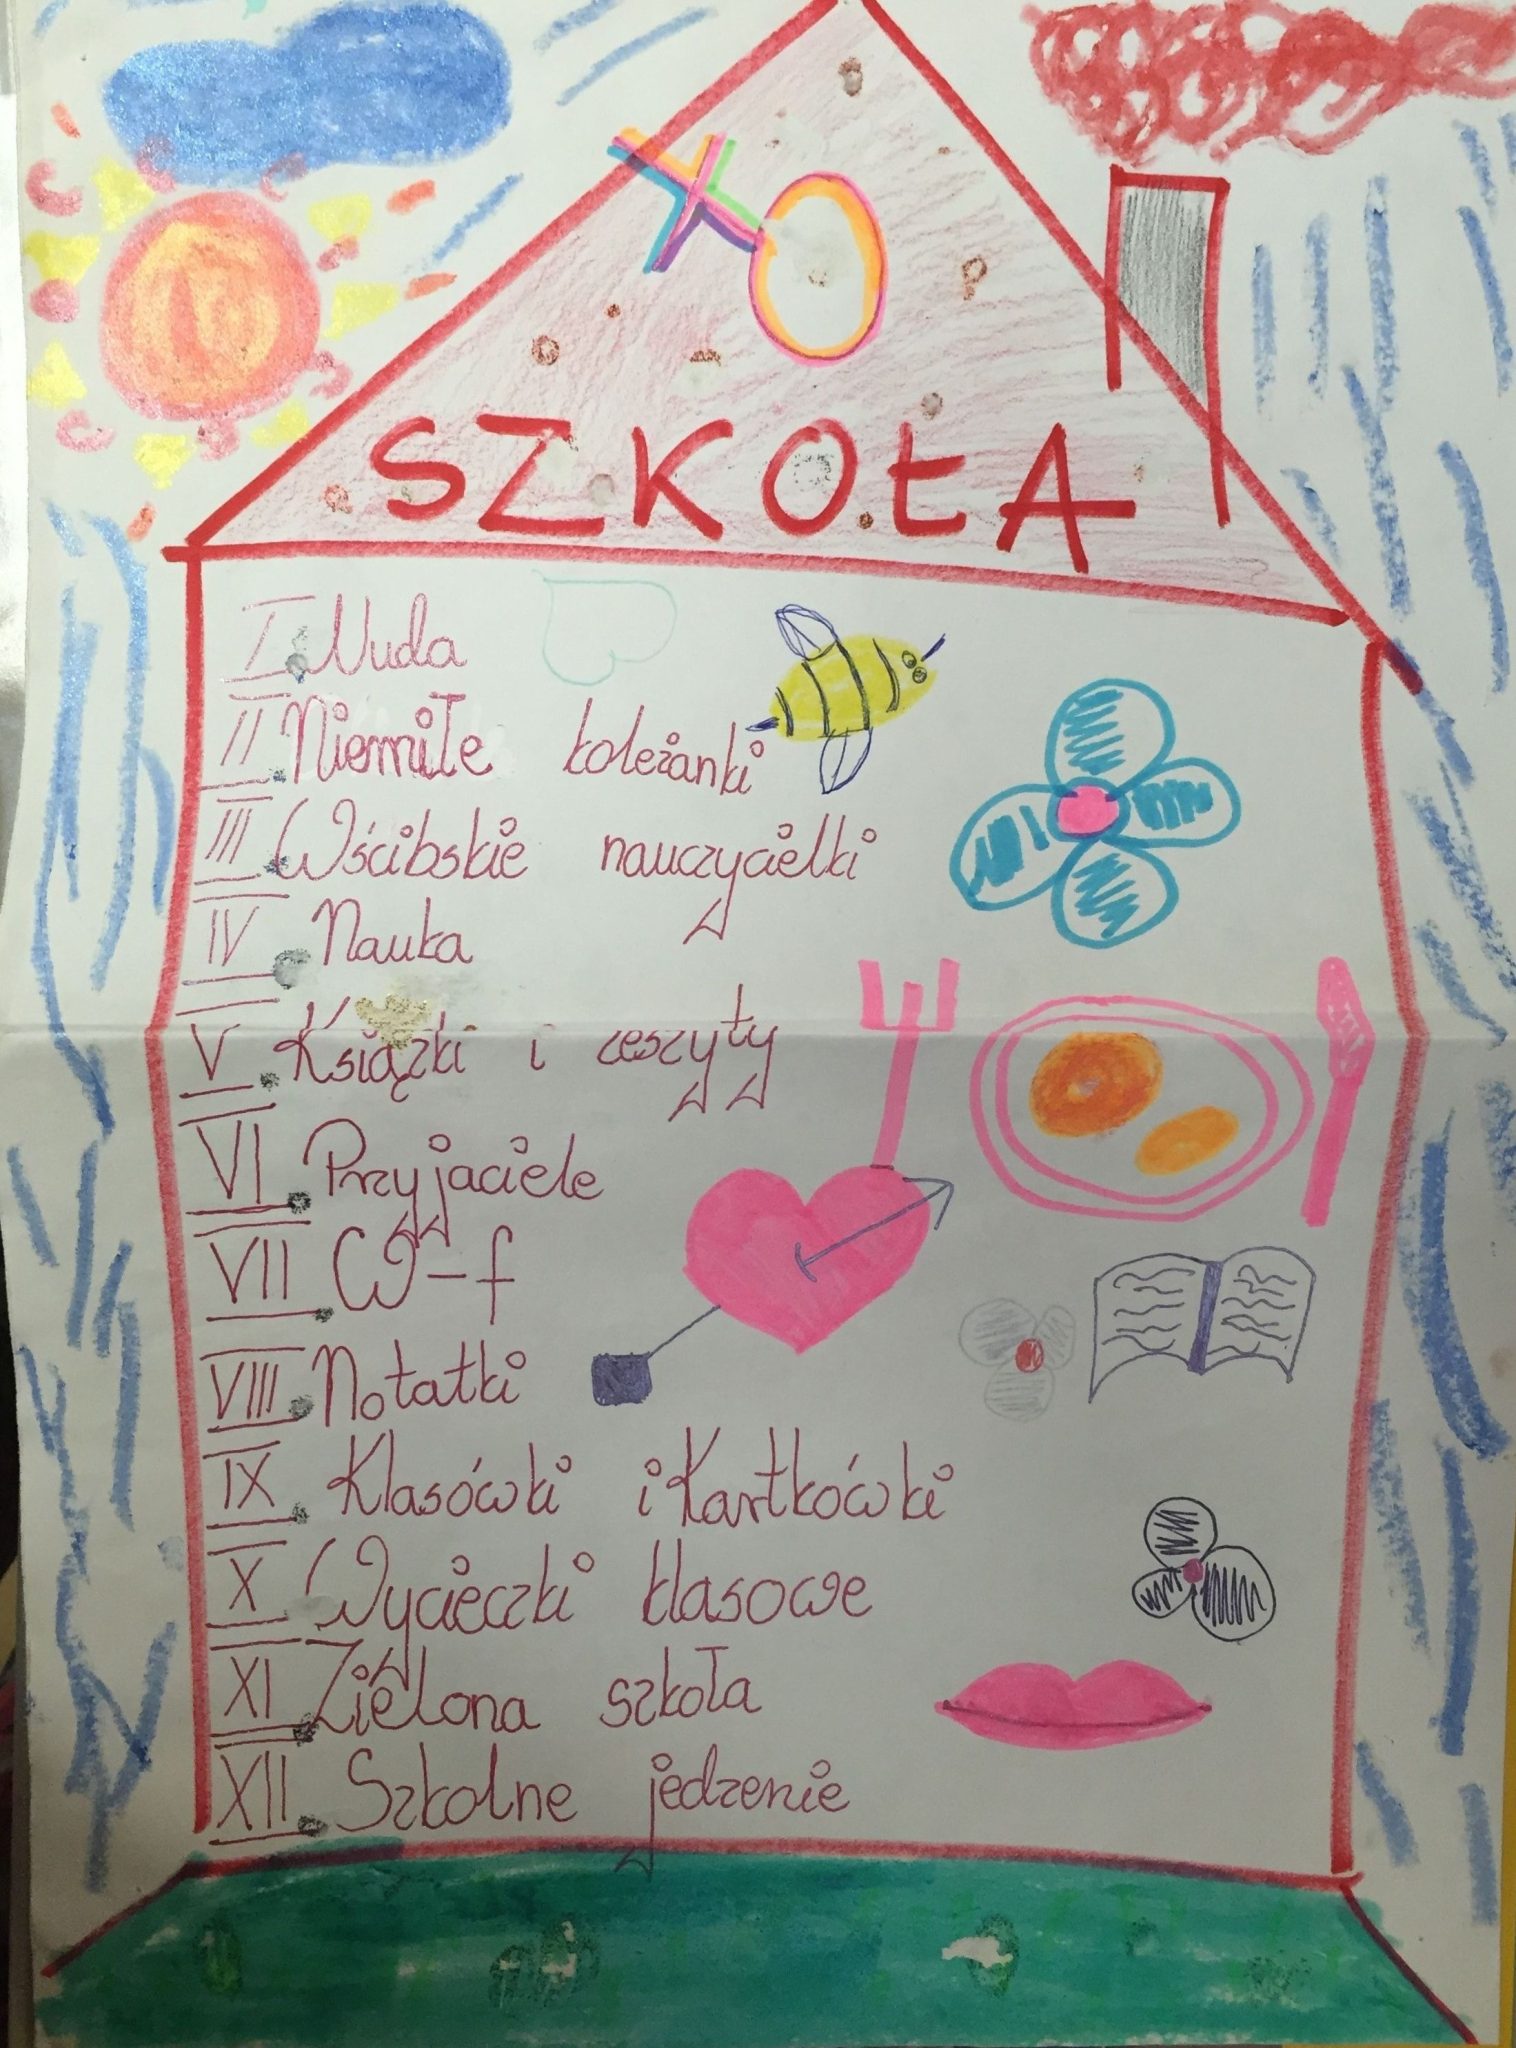 XO
SZKOŁA
I. Nuda
II. Niemiłe koleżanki
III. Wścibskie nauczycielki
IV. Nauka
V. Książki i zeszyty
VI. Przyjaciele
VII. W-f
VIII. Notatki
IX. Klasówki i Kartkówki
X. Wycieczki klasowe
XI. Zielona szkoła
XII. Szkolne jedzenie